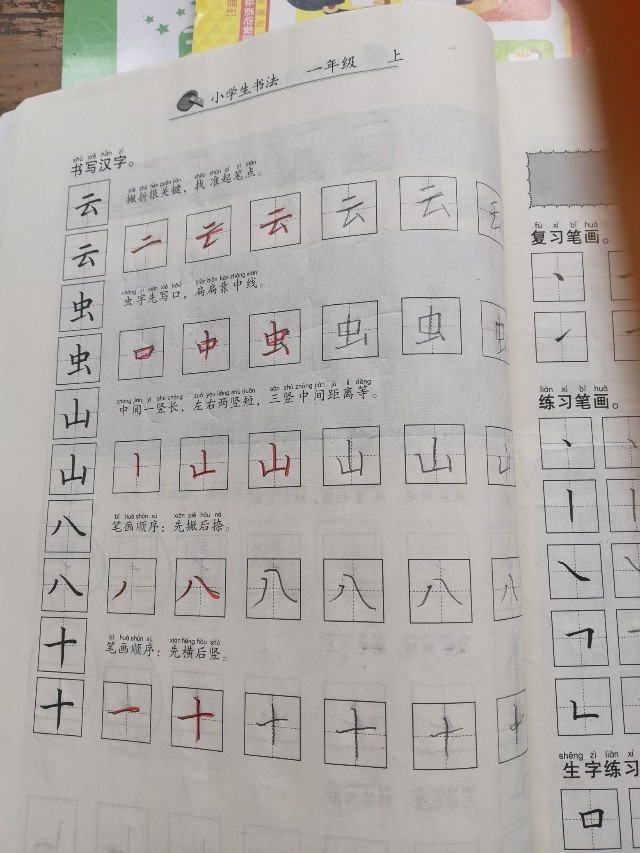 小学生书法 一年级 上
shū xiě hàn zì
书写汉字。
云
piě zhé hěn guān jiàn, zhǎo zhǔn qǐ bǐ diǎn
撇折很关键，找准起笔点。
云 二 云 云 云 云 云
虫
chóng zì xiān xiě kǒu, biǎn biǎn kào zhōng xiàn
虫字先写口，扁扁靠中线。
虫 口 中 虫 虫 虫 虫
山
zhōng jiān yí shù cháng, zuǒ yòu liǎng shù duǎn, sān shù zhōng jiān jù lí děng
中间一竖长，左右两竖短，三竖中间距离等。
山 丨 山 山 山 山
八
bǐ huà shùn xù xiān piě hòu nà
笔画顺序：先撇后捺。
八 丿 八 八 八 八 八
十
bǐ huà shùn xù xiān héng hòu shù
笔画顺序：先横后竖。
十 一 十 十 十 十 十
fù xí bǐ huà
复习笔画。
liàn xí bǐ huà
练习笔画。
shēng zì liàn xí
生字练习
口